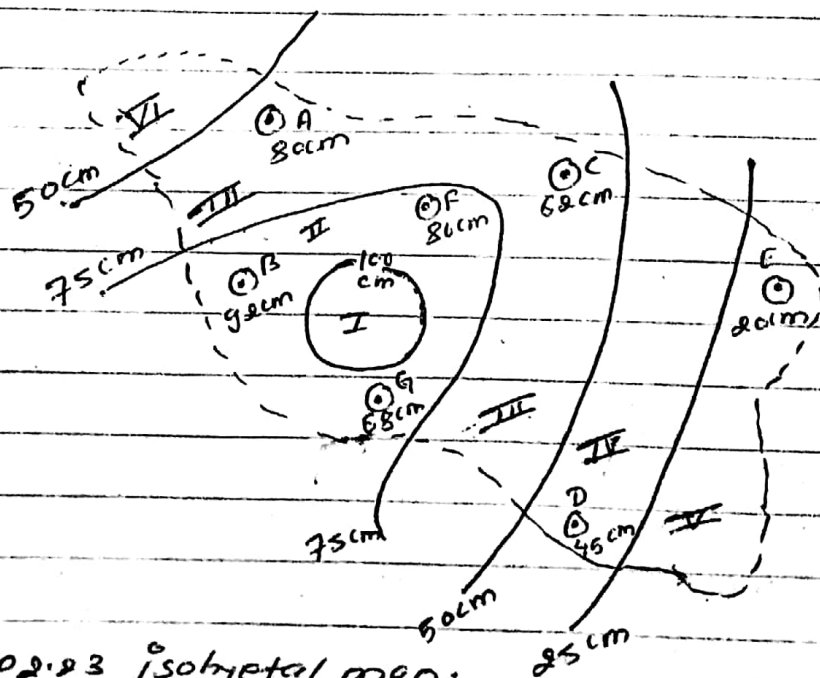 VI
A
80cm
50cm
C
62cm
III
F
86cm
II
75cm
B
92cm
100
cm
I
E
20cm
G
68cm
III
IV
D
45cm
V
75cm
50cm
25cm
02.23 isohyetal map.